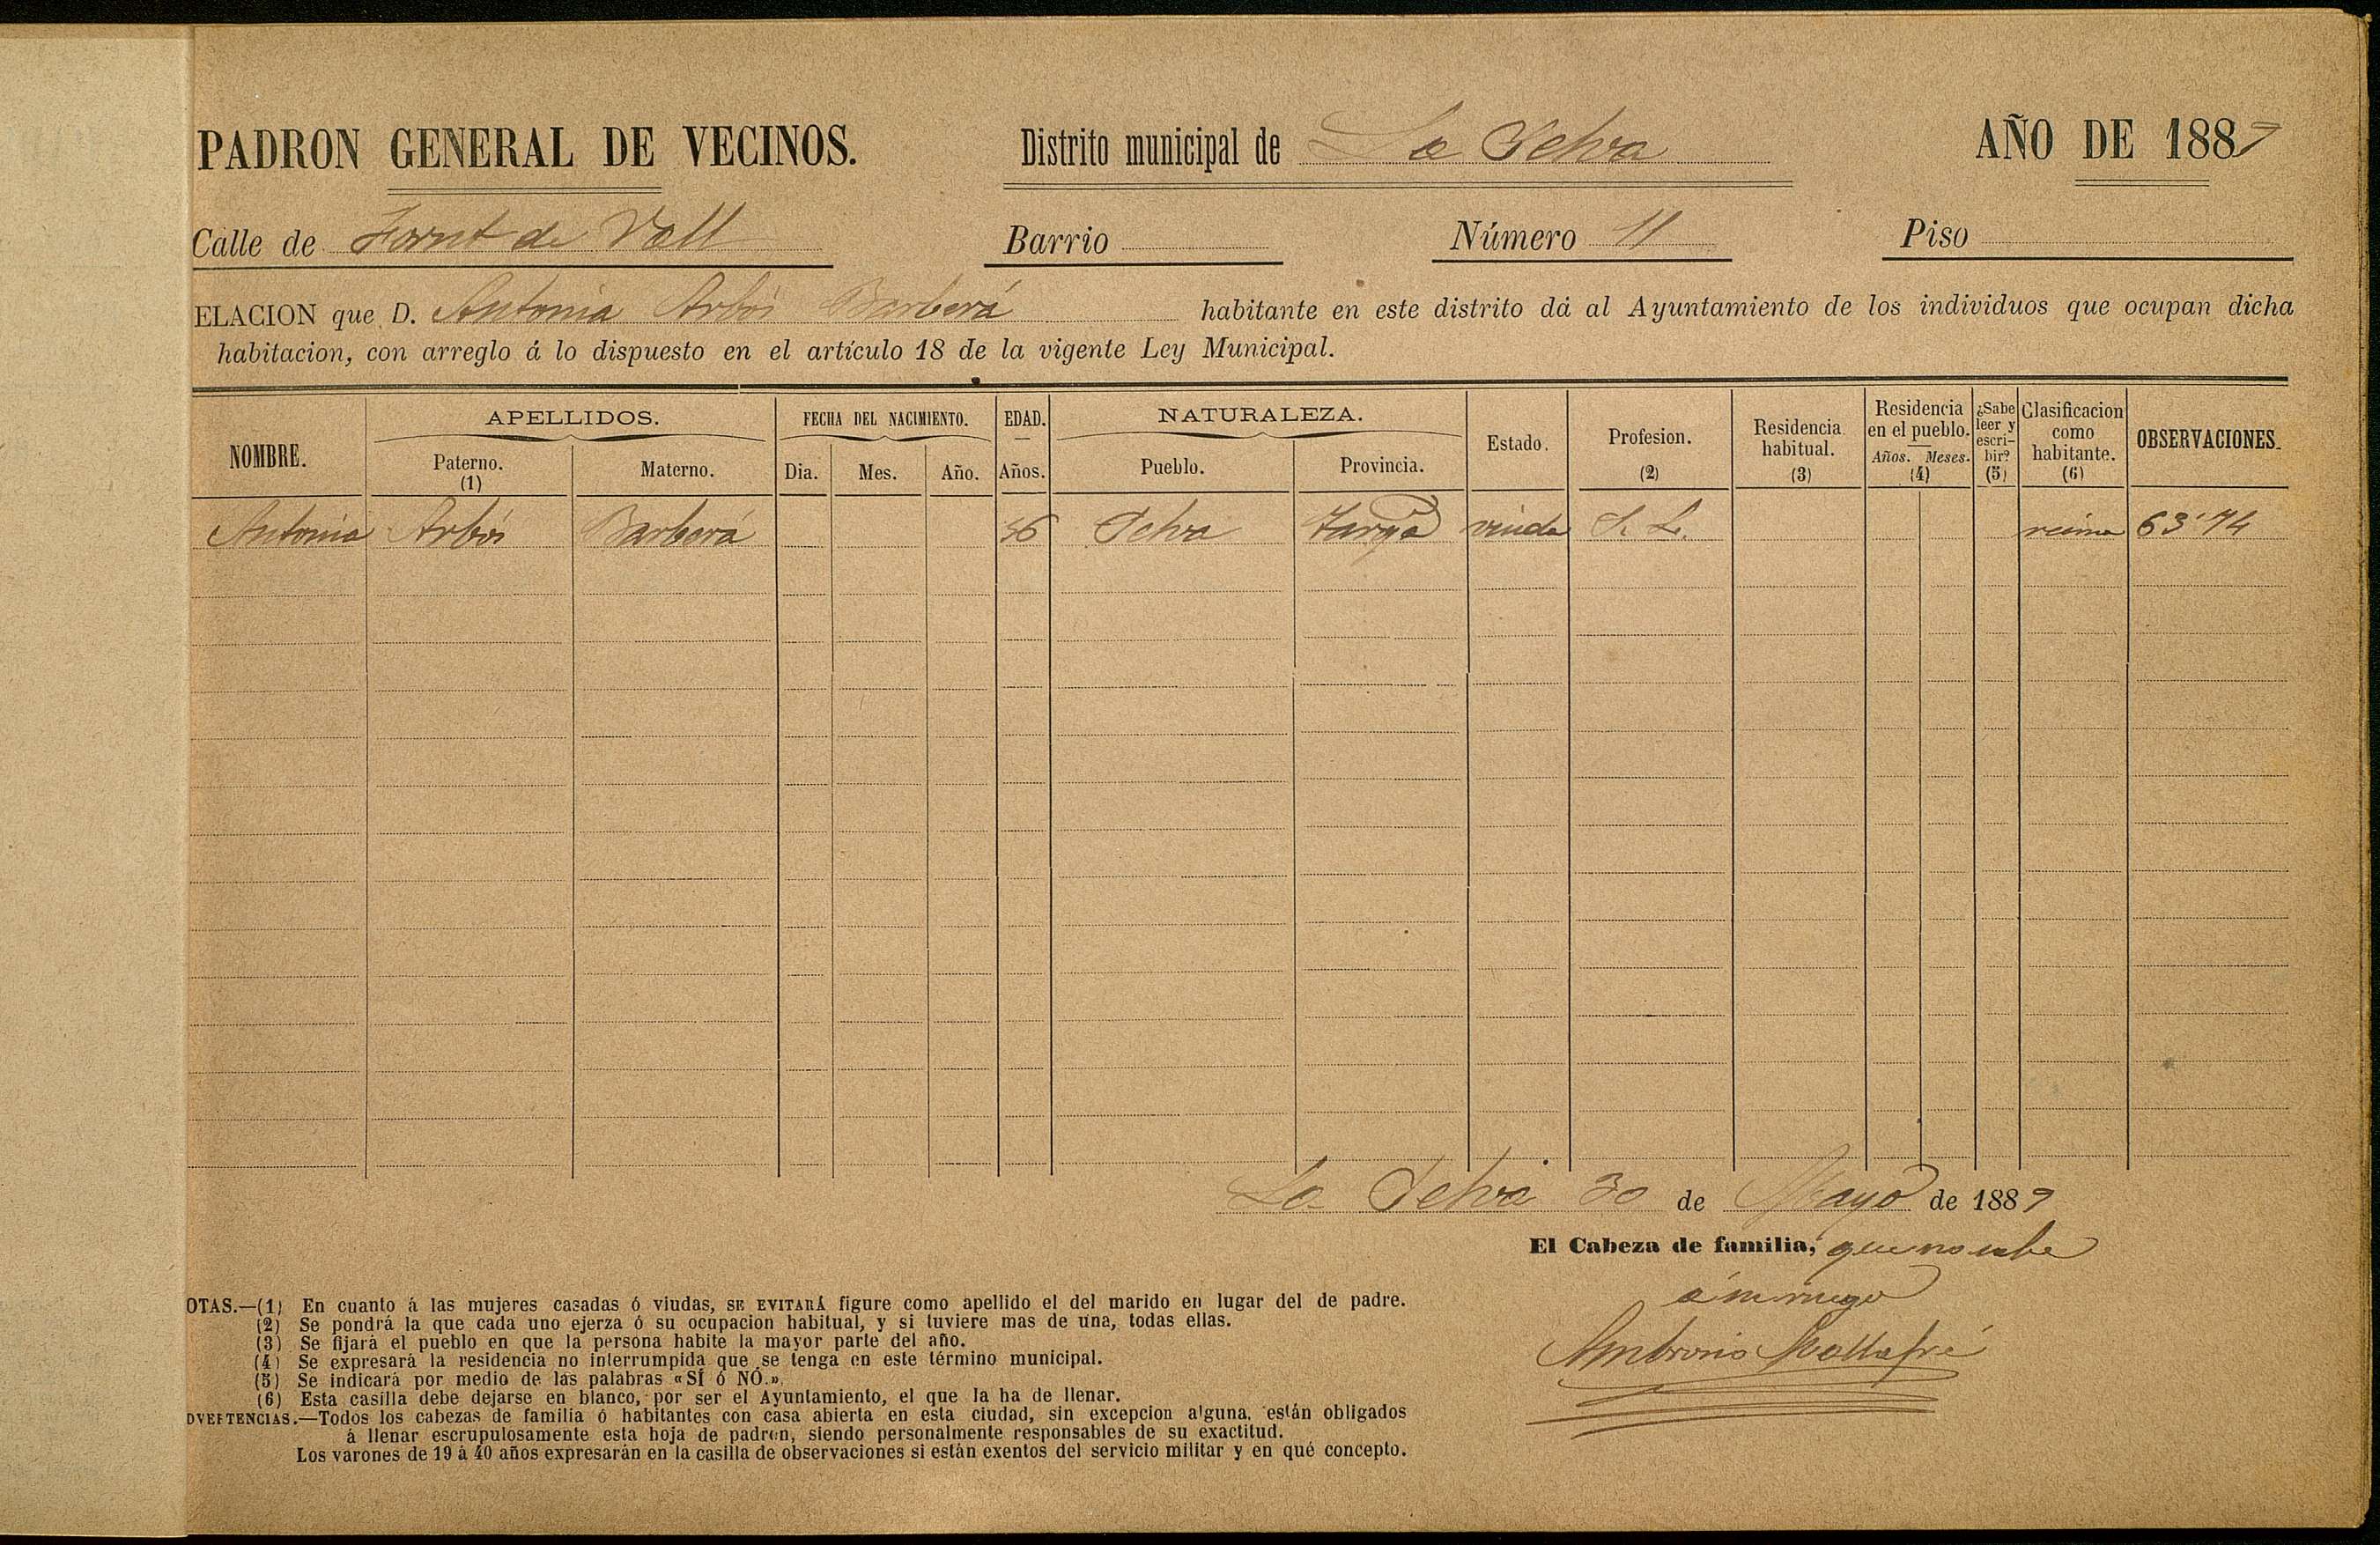 PADRON GENERAL DE VECINOS. Distrito municipal de La Selva AÑO DE 1889
Calle de Fornt de Vall Barrio Número 11 Piso
ELACION que D. Antonia Arbós Barberá habitante en este distrito dá al Ayuntamiento de los individuos que ocupan dicha
habitacion, con arreglo á lo dispuesto en el artículo 18 de la vigente Ley Municipal.
NOMBRE. APELLIDOS. FECHA DEL NACIMIENTO. EDAD. NATURALEZA. Estado. Profesion. (2) Residencia habitual. (3) Residencia en el pueblo. Años. Meses. (4) ¿Sabe leer y escribir? (5) Clasificacion como habitante. (6) OBSERVACIONES.
Paterno. (1) Materno. Dia. Mes. Año. Años. Pueblo. Provincia.
Antonia Arbós Barberá Selva Tarrga viuda S. L. 63'74
La Selva 30 de Mayo de 1889
El Cabeza de familia, que no sabe
á mi ruego
Ambrosio Mallafré
OTAS.—(1) En cuanto á las mujeres casadas ó viudas, SE EVITARÁ figure como apellido el del marido en lugar del de padre.
(2) Se pondrá la que cada uno ejerza ó su ocupacion habitual, y si tuviere mas de una, todas ellas.
(3) Se fijará el pueblo en que la persona habite la mayor parte del año.
(4) Se expresará la residencia no interrumpida que se tenga en este término municipal.
(5) Se indicará por medio de las palabras «SÍ ó NO.»
(6) Esta casilla debe dejarse en blanco, por ser el Ayuntamiento, el que la ha de llenar.
DVERTENCIAS.—Todos los cabezas de familia ó habitantes con casa abierta en esta ciudad, sin excepcion alguna, están obligados
á llenar escrupulosamente esta hoja de padron, siendo personalmente responsables de su exactitud.
Los varones de 19 á 40 años expresarán en la casilla de observaciones si están exentos del servicio militar y en qué concepto.